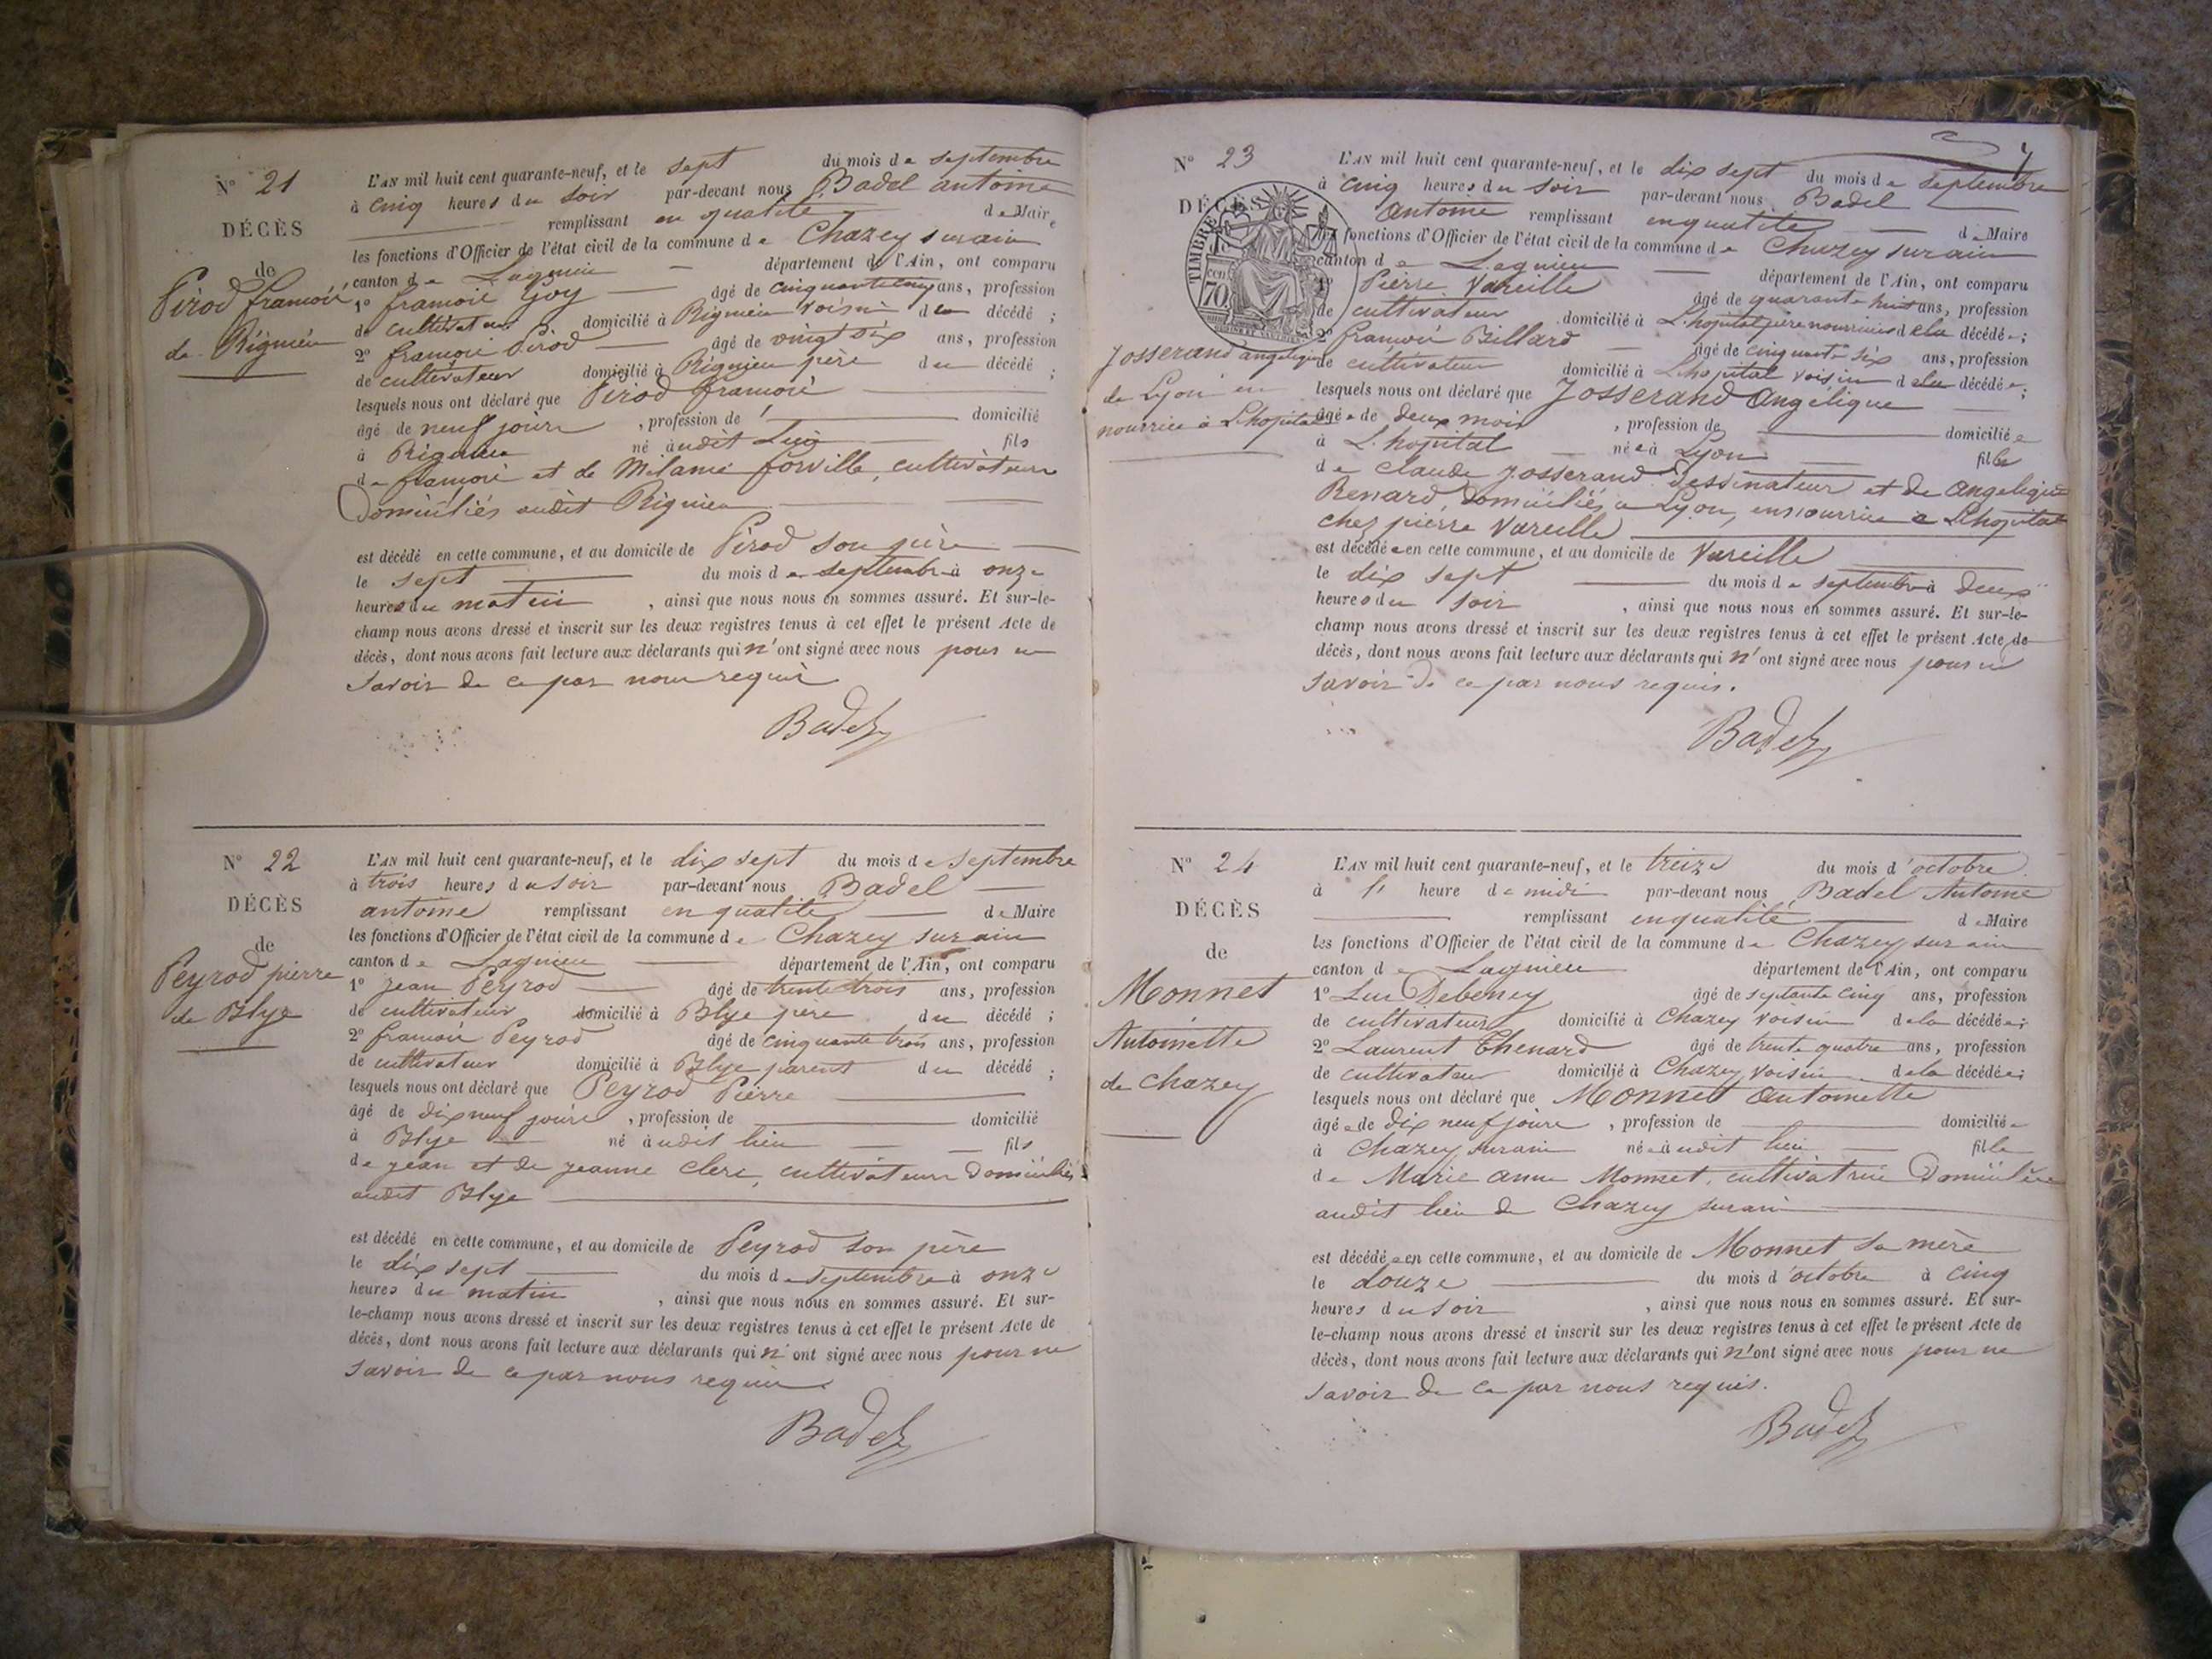 N° 21
DÉCÈS
de
Pirod françois
de Rignieu
L'AN mil huit cent quarante-neuf, et le sept du mois de septembre
à cinq heures du soir par-devant nous Badel antoine
remplissant en qualité de Maire
les fonctions d'Officier de l'état civil de la commune de Chazey surain
canton de Lagnieu département de l'Ain, ont comparu
1° françois Goy âgé de cinquante cinq ans, profession
de cultivateur domicilié à Rignieu voisin du décédé ;
2° françois Pirod âgé de vingt six ans, profession
de cultivateur domicilié à Rignieu père du décédé ;
lesquels nous ont déclaré que Pirod françois
âgé de neuf jours , profession de domicilié
à Rignieu né audit lieu fils
de françois et de Mélanie forville, cultivateurs
Domiciliés audit Rignieu
est décédé en cette commune, et au domicile de Pirod son père
le sept du mois de septembre à onze
heures du matin , ainsi que nous nous en sommes assuré. Et sur-le-
champ nous avons dressé et inscrit sur les deux registres tenus à cet effet le présent Acte de
décès, dont nous avons fait lecture aux déclarants qui n'ont signé avec nous pour ne
savoir de ce par nous requis
Badel
N° 22
DÉCÈS
de
Peyrod pierre
de Blye
L'AN mil huit cent quarante-neuf, et le dix sept du mois de septembre
à trois heures du soir par-devant nous Badel
antoine remplissant en qualité de Maire
les fonctions d'Officier de l'état civil de la commune de Chazey sur ain
canton de Lagnieu département de l'Ain, ont comparu
1° jean Peyrod âgé de trente trois ans, profession
de cultivateur domicilié à Blye père du décédé ;
2° françois Peyrod âgé de cinquante trois ans, profession
de cultivateur domicilié à Blye parent du décédé ;
lesquels nous ont déclaré que Peyrod Pierre
âgé de dix neuf jours , profession de domicilié
à Blye né audit lieu fils
de jean et de jeanne clerc, cultivateurs Domiciliés
audit Blye
est décédé en cette commune, et au domicile de Peyrod son père
le dix sept du mois de septembre à onze
heures du matin , ainsi que nous nous en sommes assuré. Et sur-
le-champ nous avons dressé et inscrit sur les deux registres tenus à cet effet le présent Acte de
décès, dont nous avons fait lecture aux déclarants qui n'ont signé avec nous pour ne
savoir de ce par nous requis
Badel
7
N° 23
DÉCÈS
TIMBRE
70
Josserand angelique
de Lyon en
nourrice à Lhopital
L'AN mil huit cent quarante-neuf, et le dix sept du mois de septembre
à cinq heures du soir par-devant nous Badel
antoine remplissant en qualité de Maire
les fonctions d'Officier de l'état civil de la commune de Chazey surain
canton de Lagnieu département de l'Ain, ont comparu
1° Pierre Vareille âgé de quarante huit ans, profession
de cultivateur domicilié à L'hopital père nourricier de la décédée ;
2° françois Billard âgé de cinquante six ans, profession
de cultivateur domicilié à Lhopital voisin de la décédée ;
lesquels nous ont déclaré que Josserand Angelique
âgée de deux mois , profession de domiciliée
à L'hopital née à Lyon fille
de claude Josserand Dessinateur et de Angelique
Renard, Domiciliés à Lyon, en nourrice a Lhopital
chez pierre Vareille
est décédée en cette commune, et au domicile de Vareille
le dix sept du mois de septembre à deux
heures du soir , ainsi que nous nous en sommes assuré. Et sur-le-
champ nous avons dressé et inscrit sur les deux registres tenus à cet effet le présent Acte de
décès, dont nous avons fait lecture aux déclarants qui n'ont signé avec nous pour ne
savoir de ce par nous requis.
Badel
N° 24
DÉCÈS
de
Monnet
Antoinette
de Chazey
L'AN mil huit cent quarante-neuf, et le treize du mois d'octobre
à 1 heure de midi par-devant nous Badel Antoine
remplissant en qualité de Maire
les fonctions d'Officier de l'état civil de la commune de Chazey sur ain
canton de Lagnieu département de l'Ain, ont comparu
1° Luc Debeney âgé de septante cinq ans, profession
de cultivateur domicilié à Chazey voisin de la décédée ;
2° Laurent Thenard âgé de trente quatre ans, profession
de cultivateur domicilié à Chazey voisin de la décédée ;
lesquels nous ont déclaré que Monnet Antoinette
âgée de dix neuf jours , profession de domiciliée
à Chazey surain née audit lieu fille
de Marie anne Monnet, cultivatrice Domiciliée
audit lieu de Chazey surain
est décédée en cette commune, et au domicile de Monnet sa mère
le douze du mois d'octobre à cinq
heures du soir , ainsi que nous nous en sommes assuré. Et sur-
le-champ nous avons dressé et inscrit sur les deux registres tenus à cet effet le présent Acte de
décès, dont nous avons fait lecture aux déclarants qui n'ont signé avec nous pour ne
savoir de ce par nous requis.
Badel